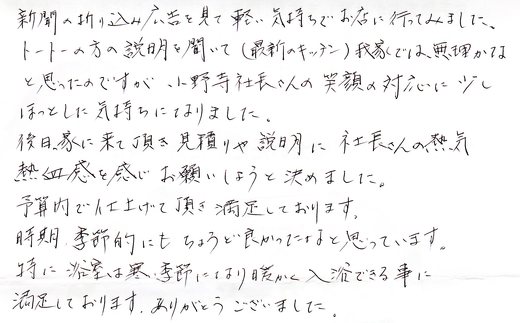 新聞の折り込み広告を見て軽い気持ちでお店に行ってみました、
トートーの方の説明を聞いて(最新のキッチン)我家では無理かなな
と思ったのですが 小野寺社長さんの笑顔の対応に少し
ほっとした気持ちになりました。
後日家に来て頂き見積りや説明に社長さんの熱気
熱血感を感じお願いしようと決めました。
予算内で仕上げて頂き満足しております。
時期、季節的にもちょうど良かったなと思っています。
特に浴室は寒い季節になり暖かく入浴できる事に
満足しております。ありがとうございました。